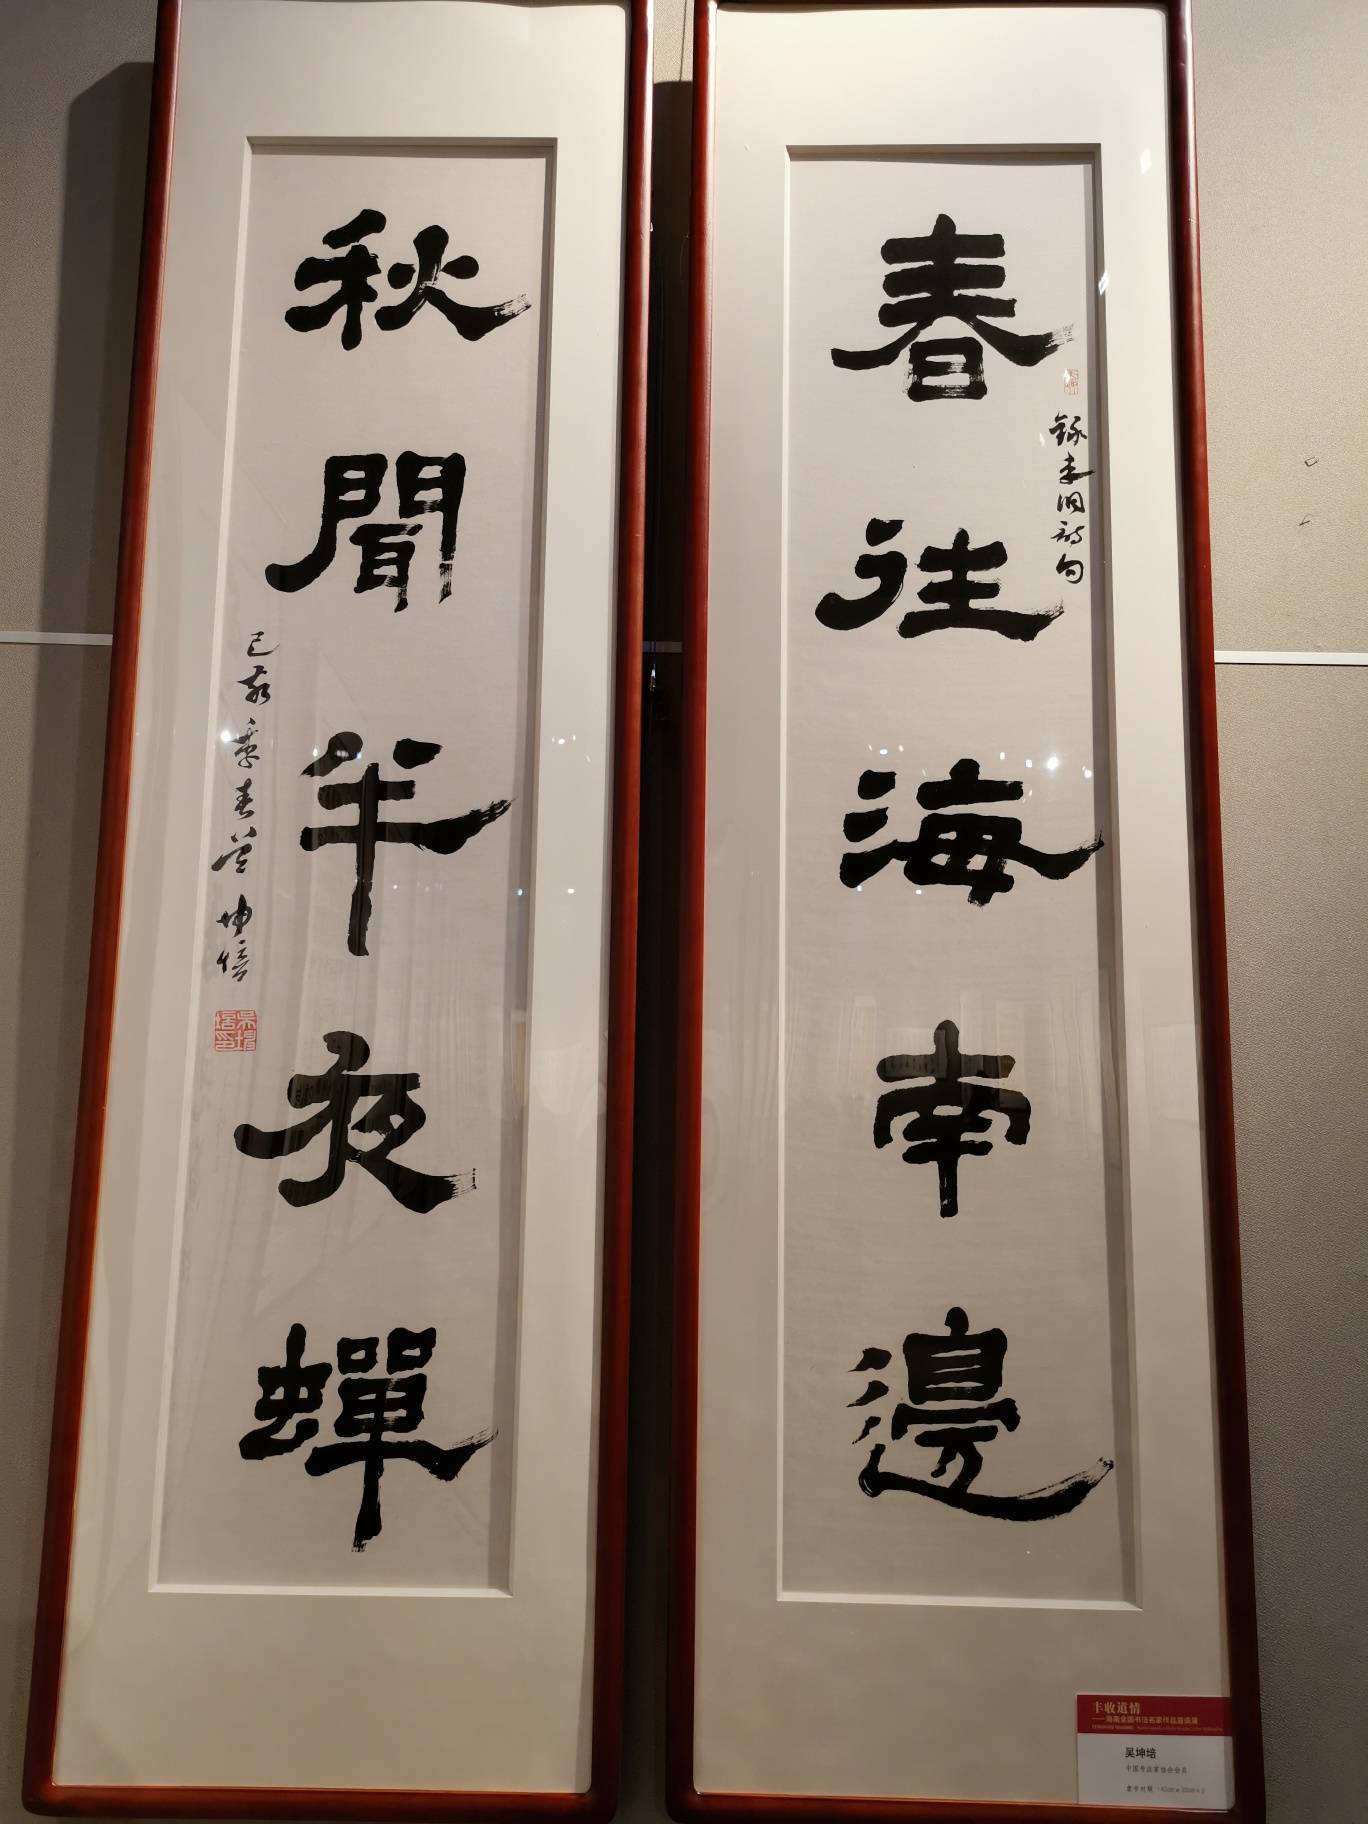 春往海南邊
録耒洄詩句
秋聞半夜蟬
己亥季春吴坤培
丰收道情
——海南全国书法名家作品邀请展
吴坤培
中国书法家协会会员
隶书对联